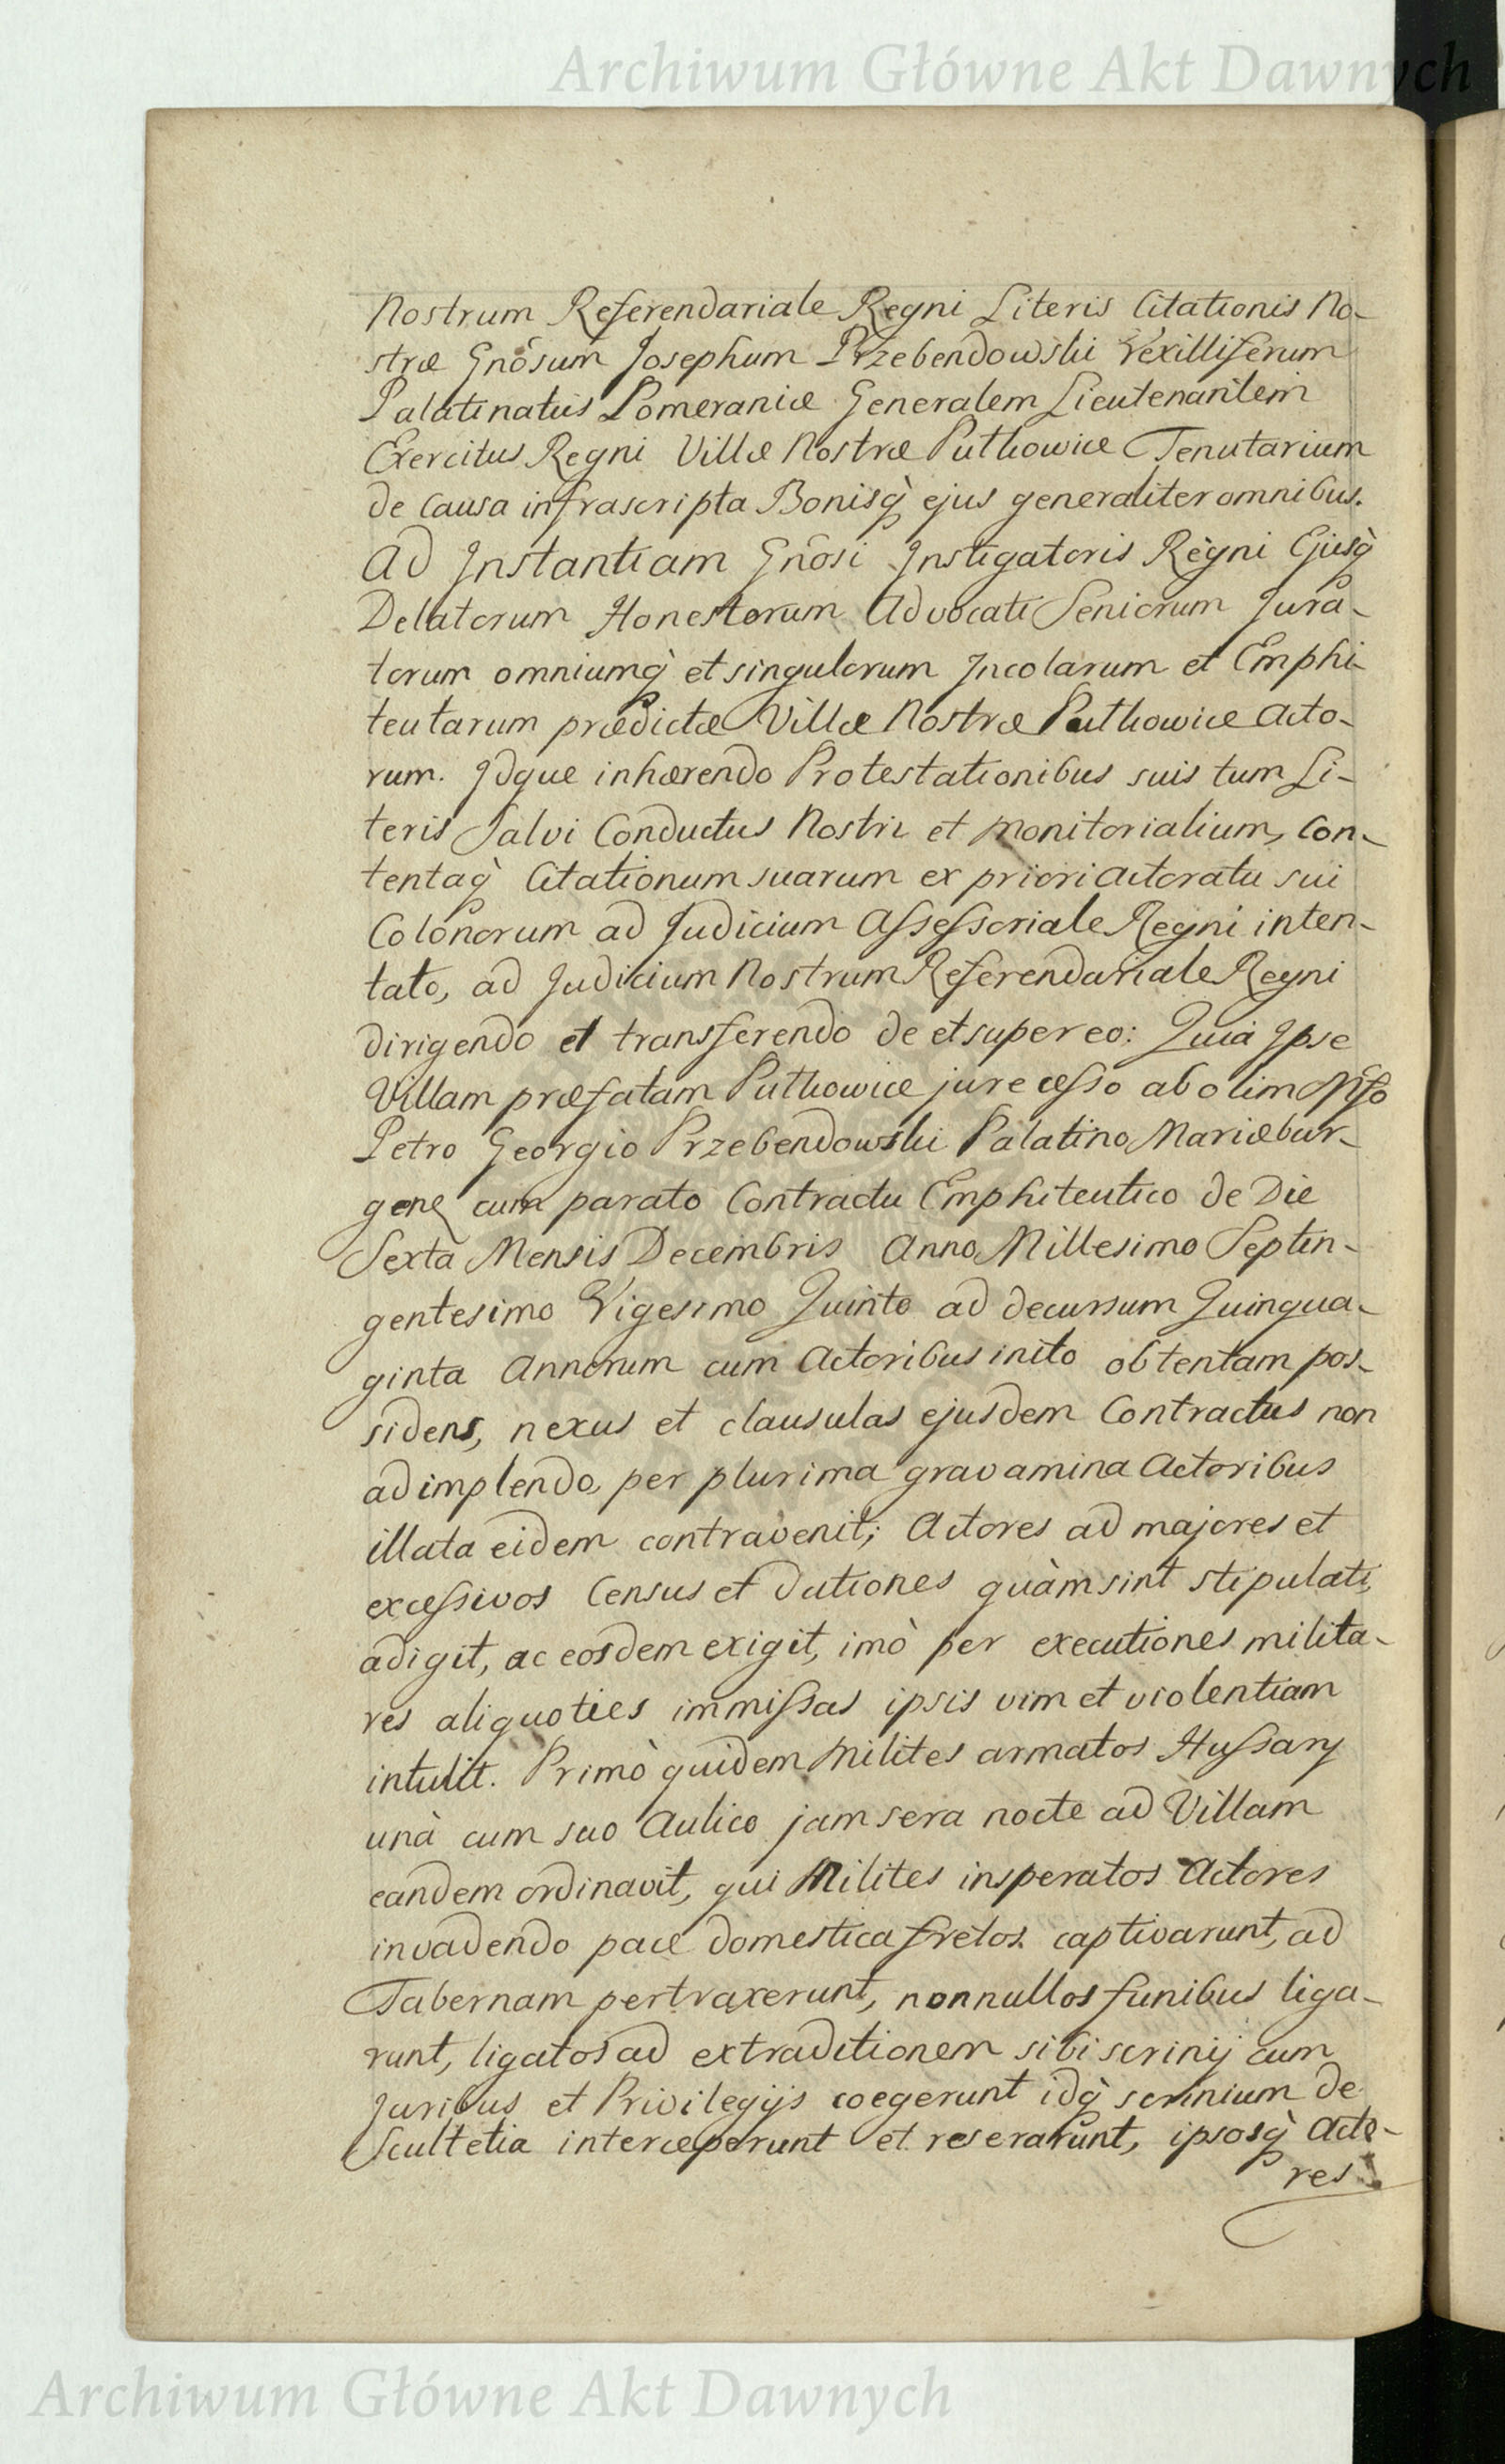 Archiwum Główne Akt Dawnych
Nostrum Referendariale Regni Literis Citationis No-
stræ Gnõsum Josephum Przebendowski Vexilliferum
Palatinatus Pomeraniæ Generalem Lieutenantem
Exercitus Regni Villæ Nostræ Putkowice Tenutarium
de causa infrascripta Bonisq̀ ejus generaliter omnibus.
Ad Instantiam Gnõsi Instigatoris Regni Ejusq̀
Delatorum Honestorum Advocati Seniorum Jura-
torum omniumq̀ et singulorum Incolarum et Emphi-
teutarum prædictæ Villæ Nostræ Putkowice Acto-
rum. Idque inhærendo Protestationibus suis tum Li-
teris Salvi Conductus Nostri et Monitorialium, Con-
tentaq̀ Citationum suarum ex priori Actoratu sui
Colonorum ad Judicium Assessoriale Regni inten-
tato, ad Judicium Nostrum Referendariale Regni
dirigendo et transferendo de et super eo: Quia Ipse
Villam præfatam Putkowice jure cesso ab olim
Petro Georgio Przebendowski Palatino Mariæbur-
gen cum parato Contractu Emphiteutico de Die
Sexta Mensis Decembris Anno Millesimo Septin-
gentesimo Vigesimo Quinto ad decursum Quinqua-
ginta Annorum cum Actoribus inito obtentam pos-
sidens, nexus et clausulas ejusdem Contractus non
adimplendo, per plurima gravamina Actoribus
illata eidem contravenit; Actores ad majores et
excessivos Census et dationes quàm sint stipulati,
adigit, ac eosdem exigit, imò per executiones milita-
res aliquoties immissas ipsis vim et violentiam
intulit. Primò quidem Milites armatos Hussary
unà cum suo Aulico jam sera nocte ad Villam
eandem ordinavit, qui Milites insperatos Actores
invadendo pace domestica fretos captivarunt, ad
Tabernam pertraxerunt, nonnullos funibus liga-
runt, ligatos ad extraditionem sibi scrinij cum
Juribus et Privilegijs coegerunt idq̀ scrinium de
Scultetia interceperunt et reserarunt, ipsosq̀ Acto-
res
Archiwum Główne Akt Dawnych